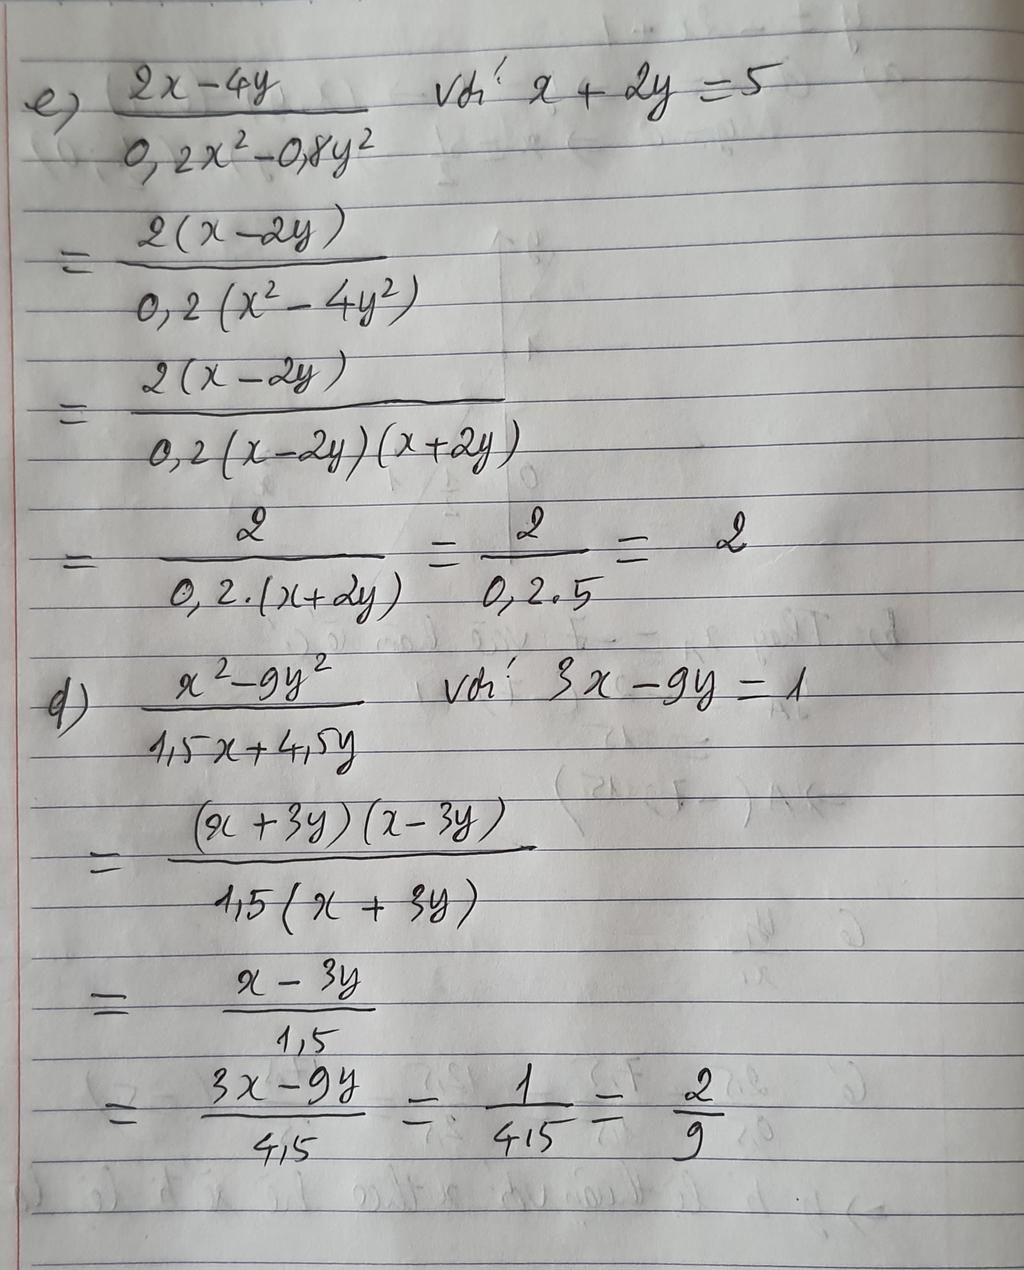 e) (2x-4y)/(0,2x²-0,8y²) với x + 2y = 5
= 2(x-2y)/(0,2(x²-4y²))
= 2(x-2y)/(0,2(x-2y)(x+2y))
= 2/(0,2.(x+2y)) = 2/(0,2.5) = 2
d) (x²-9y²)/(1,5x+4,5y) với 3x-9y = 1
= (x+3y)(x-3y)/(1,5(x+3y))
= (x-3y)/1,5
= (3x-9y)/4,5 = 1/4,5 = 2/9